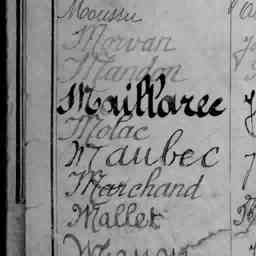 Moussu
Morvan
Mandon
Maillaree
Molac
Maubec
Marchand
Mallet